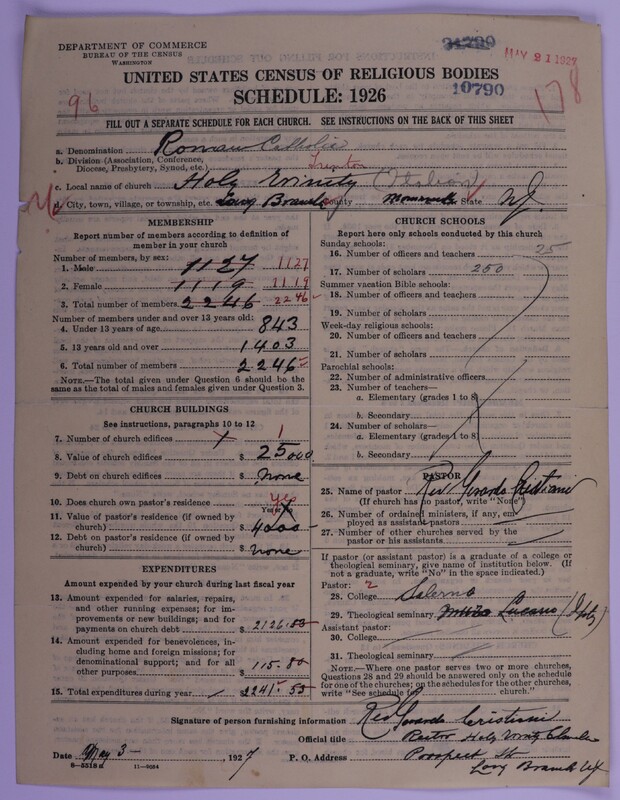 DEPARTMENT OF COMMERCE
BUREAU OF THE CENSUS
WASHINGTON
MAY 21 1927
UNITED STATES CENSUS OF RELIGIOUS BODIES
SCHEDULE: 1926
10790
96
178
FILL OUT A SEPARATE SCHEDULE FOR EACH CHURCH. SEE INSTRUCTIONS ON THE BACK OF THIS SHEET
a. Denomination Roman Catholic
b. Division (Association, Conference,
Diocese, Presbytery, Synod, etc.) Trenton
c. Local name of church Holy Trinity (Italian)
d. City, town, village, or township, etc. Long Branch County Monmouth State N.J.
MEMBERSHIP
Report number of members according to definition of
member in your church
Number of members, by sex:
1. Male 1127 1127
2. Female 1119 1119
3. Total number of members 2246 2246
Number of members under and over 13 years old:
4. Under 13 years of age 843
5. 13 years old and over 1403
6. Total number of members 2246
NOTE.—The total given under Question 6 should be the
same as the total of males and females given under Question 3.
CHURCH BUILDINGS
See instructions, paragraphs 10 to 12
7. Number of church edifices 1
8. Value of church edifices $ 25000
9. Debt on church edifices $ none
10. Does church own pastor's residence Yes
11. Value of pastor's residence (if owned by
church) $ 4000
12. Debt on pastor's residence (if owned by
church) $ none
EXPENDITURES
Amount expended by your church during last fiscal year
13. Amount expended for salaries, repairs,
and other running expenses; for im-
provements or new buildings; and for
payments on church debt $ 2126
14. Amount expended for benevolences, in-
cluding home and foreign missions; for
denominational support; and for all
other purposes $ 115.80
15. Total expenditures during year $ 2241
CHURCH SCHOOLS
Report here only schools conducted by this church
Sunday schools:
16. Number of officers and teachers 25
17. Number of scholars 250
Summer vacation Bible schools:
18. Number of officers and teachers
19. Number of scholars
Week-day religious schools:
20. Number of officers and teachers
21. Number of scholars
Parochial schools:
22. Number of administrative officers
23. Number of teachers—
a. Elementary (grades 1 to 8)
b. Secondary
24. Number of scholars—
a. Elementary (grades 1 to 8)
b. Secondary
PASTOR
25. Name of pastor Rev Gerardo Cristiani
(If church has no pastor, write "No")
26. Number of ordained ministers, if any, em-
ployed as assistant pastors
27. Number of other churches served by the
pastor or his assistants
If pastor (or assistant pastor) is a graduate of a college or
theological seminary, give name of institution below. (If
not a graduate, write "No" in the space indicated.)
Pastor: 2
28. College Salerno
29. Theological seminary Muro Lucano (Italy)
Assistant pastor:
30. College
31. Theological seminary
NOTE.—Where one pastor serves two or more churches,
Questions 28 and 29 should be answered only on the schedule
for one of the churches; on the schedules for the other churches,
write "See schedule for church."
Signature of person furnishing information Rev Gerardo Cristiani
Official title Pastor Holy Trinity Church
Date May 3— , 1927 P. O. Address Prospect St
Long Branch N.J.
8—5518a 11—9084